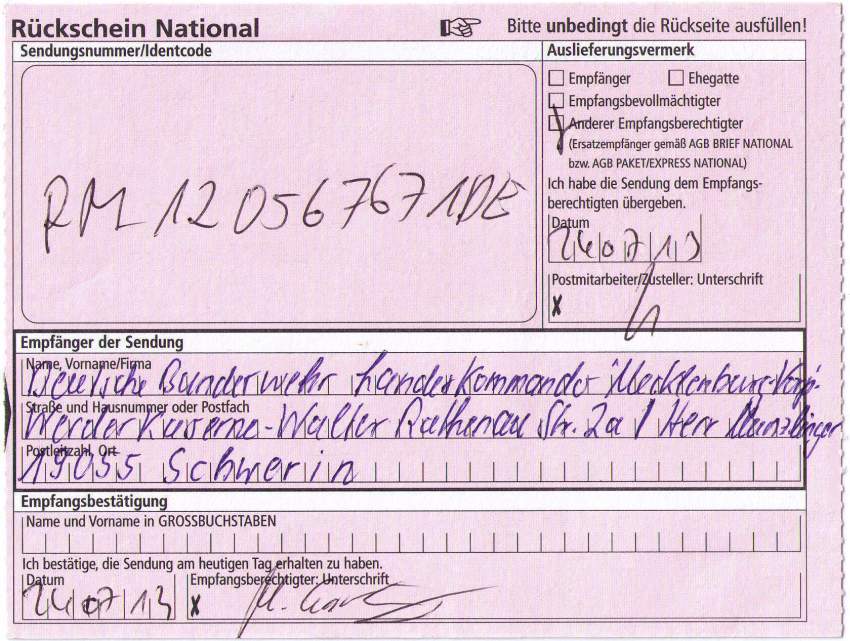 Rückschein National
Bitte unbedingt die Rückseite ausfüllen!
Sendungsnummer/Identcode
RM 12 056 767 1DE
Auslieferungsvermerk
Empfänger Ehegatte
Empfangsbevollmächtigter
Anderer Empfangsberechtigter
(Ersatzempfänger gemäß AGB BRIEF NATIONAL
bzw. AGB PAKET/EXPRESS NATIONAL)
Ich habe die Sendung dem Empfangs-
berechtigten übergeben.
Datum
240713
Postmitarbeiter/Zusteller: Unterschrift
x
Empfänger der Sendung
Name, Vorname/Firma
Deutsche Bundeswehr Landeskommando Mecklenburg-Vorp.
Straße und Hausnummer oder Postfach
Werderkaserne-Walter Rathenau Str. 2a / Herr
Postleitzahl, Ort
19055 Schwerin
Empfangsbestätigung
Name und Vorname in GROSSBUCHSTABEN
Ich bestätige, die Sendung am heutigen Tag erhalten zu haben.
Datum
240713
Empfangsberechtigter: Unterschrift
x